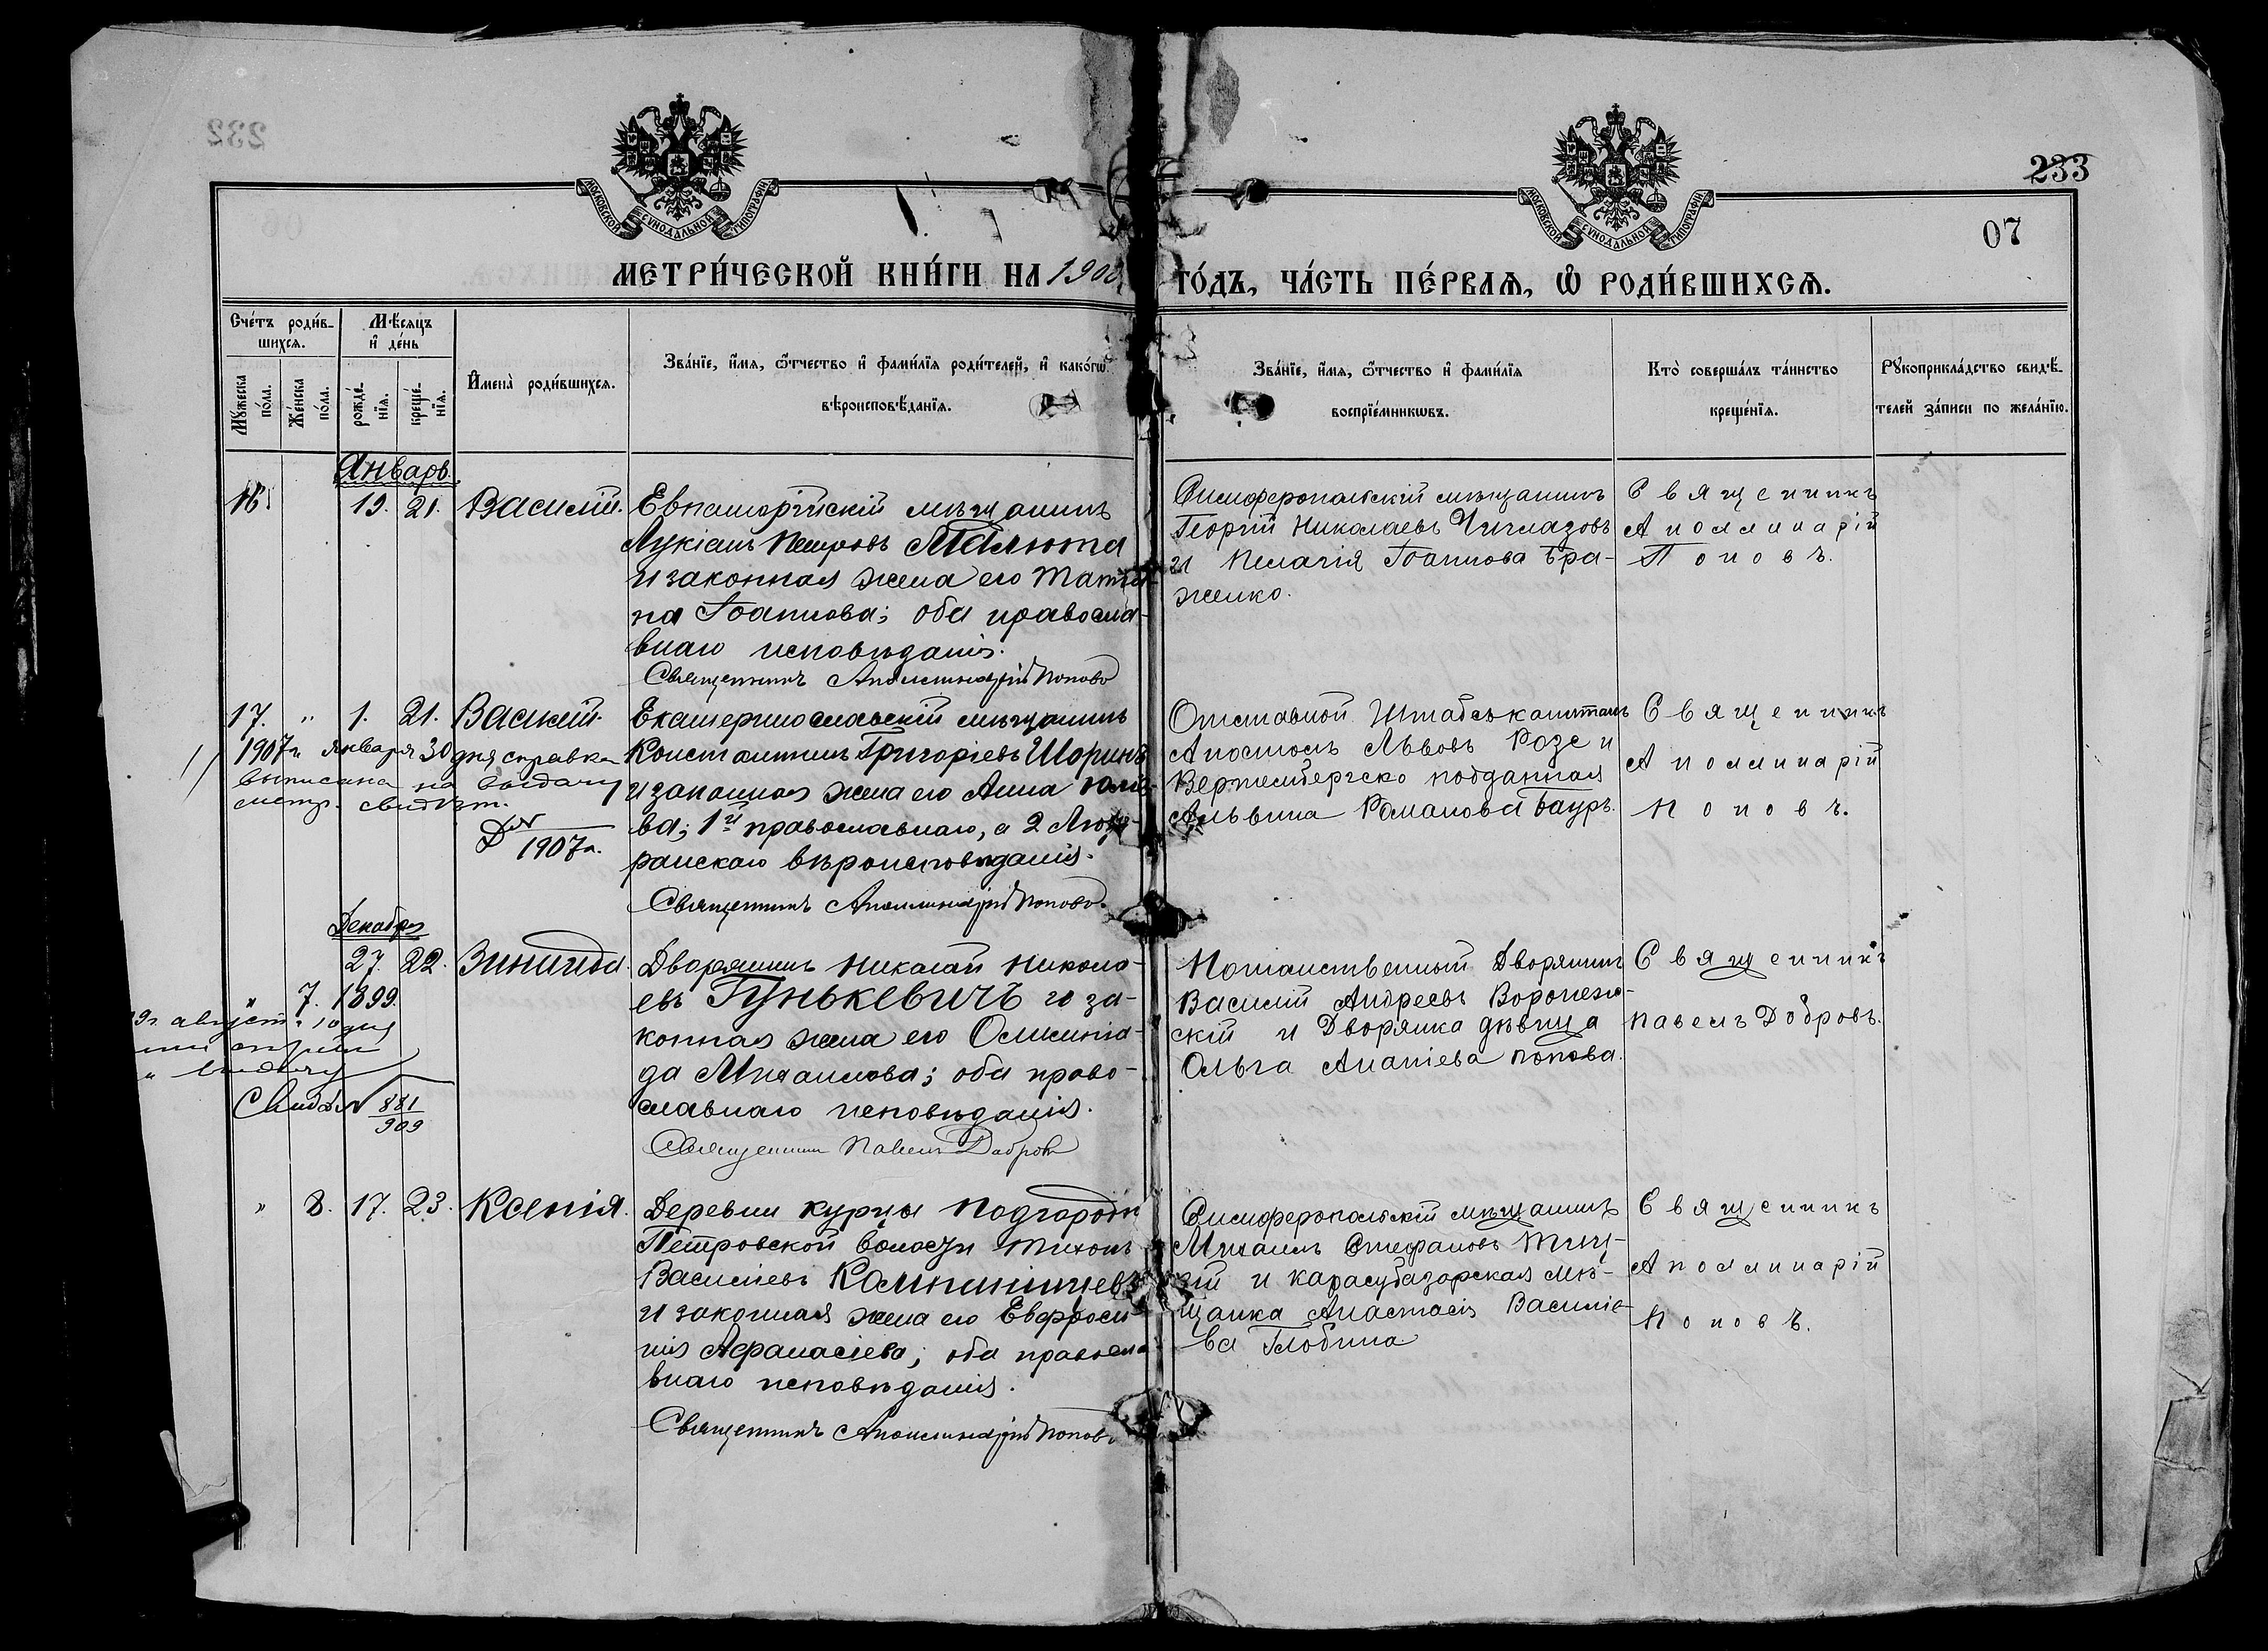 232
233
07
МОСКОВСКОЙ СѴНОДАЛЬНОЙ ТИПОГРАФІИ
МОСКОВСКОЙ СѴНОДАЛЬНОЙ ТИПОГРАФІИ
МЕТРИ́ЧЕСКОЙ КНИ́ГИ НА 1900 ГО́ДЪ, ЧА́СТЬ ПЕ́РВАѦ, Ѽ РОДИ́ВШИХСѦ.
Сче́тъ роди́в-
шихсѧ.
Мѣ́сѧцъ
и҆ де́нь
Мꙋ́жеска
по́ла.
Же́нска
по́ла.
рожде́-
нїѧ.
креще́-
нїѧ.
И҆мена̀ роди́вшихсѧ.
Зва́нїе, и҆́мѧ, ѻ҆́тчество и҆ фами́лїѧ роди́телей, и҆ како́гѡ
вѣроисповѣ́данїѧ.
Зва́нїе, и҆́мѧ, ѻ҆́тчество и҆ фами́лїѧ
воспрїе́мникѡвъ.
Кто̀ соверша́лъ та́инство
креще́нїѧ.
Рꙋкоприкла́дство свидѣ́-
телей за́писи по жела́нїю.
Январь.
16. 19. 21. Василій.
Евпаторійскій мѣщанинъ
Лукіанъ Петровъ Малюта
и законная жена его Татья-
на Іоаннова; оба правосла-
внаго исповѣданія.
Священникъ Аполлинарій Поповъ
Симферопольскій мѣщанинъ
Георгій Николаевъ
и Пелагія Іоаннова Бра-
женко.
Священникъ
Аполлинарій
Поповъ.
17. " 1. 21. Василій.
1907 г. января 30 дня справка
выписана на выдачу
метр. свидѣт.
1907 г.
Екатеринославскій мѣщанинъ
Константинъ Григоріевъ Шоринъ
и законная жена его Анна Юліе-
ва; 1й православнаго, а 2 Люте-
ранскаго вѣроисповѣданія.
Священникъ Аполлинарій Поповъ.
Отставной Штабсъ-капитанъ
Апостолъ Львовъ Розе и
Вертембергско подданная
Альвина Романова Бауръ.
Священникъ
Аполлинарій
Поповъ.
Декабря
27. 22. Зинаида.
" 7. 1899.
август. 10 дня
выдачу
Свид. № 881
909
Дворянинъ Николай Никола-
евъ Гунькевичъ и за-
конная жена его Олимпіа-
да Михаилова; оба право-
славнаго исповѣданія.
Священникъ Павелъ Добровъ
Потомственный Дворянинъ
Василій Андреевъ Воронеж-
скій и Дворянка дѣвица
Ольга Ананіева Попова.
Священникъ
Павелъ Добровъ.
" 8. 17. 23. Ксенія.
Деревни Курцы Подгородн
Петровской волости Тихонъ
Василіевъ
и законная жена его Евфроси-
нія Афанасіева; оба правосла-
внаго исповѣданія.
Священникъ Аполлинарій Поповъ
Симферопольскій мѣщанинъ
Михаилъ Стефановъ
и карасубазарская мѣ-
щанка Анастасія Василіе-
ва Глобина
Священникъ
Аполлинарій
Поповъ.